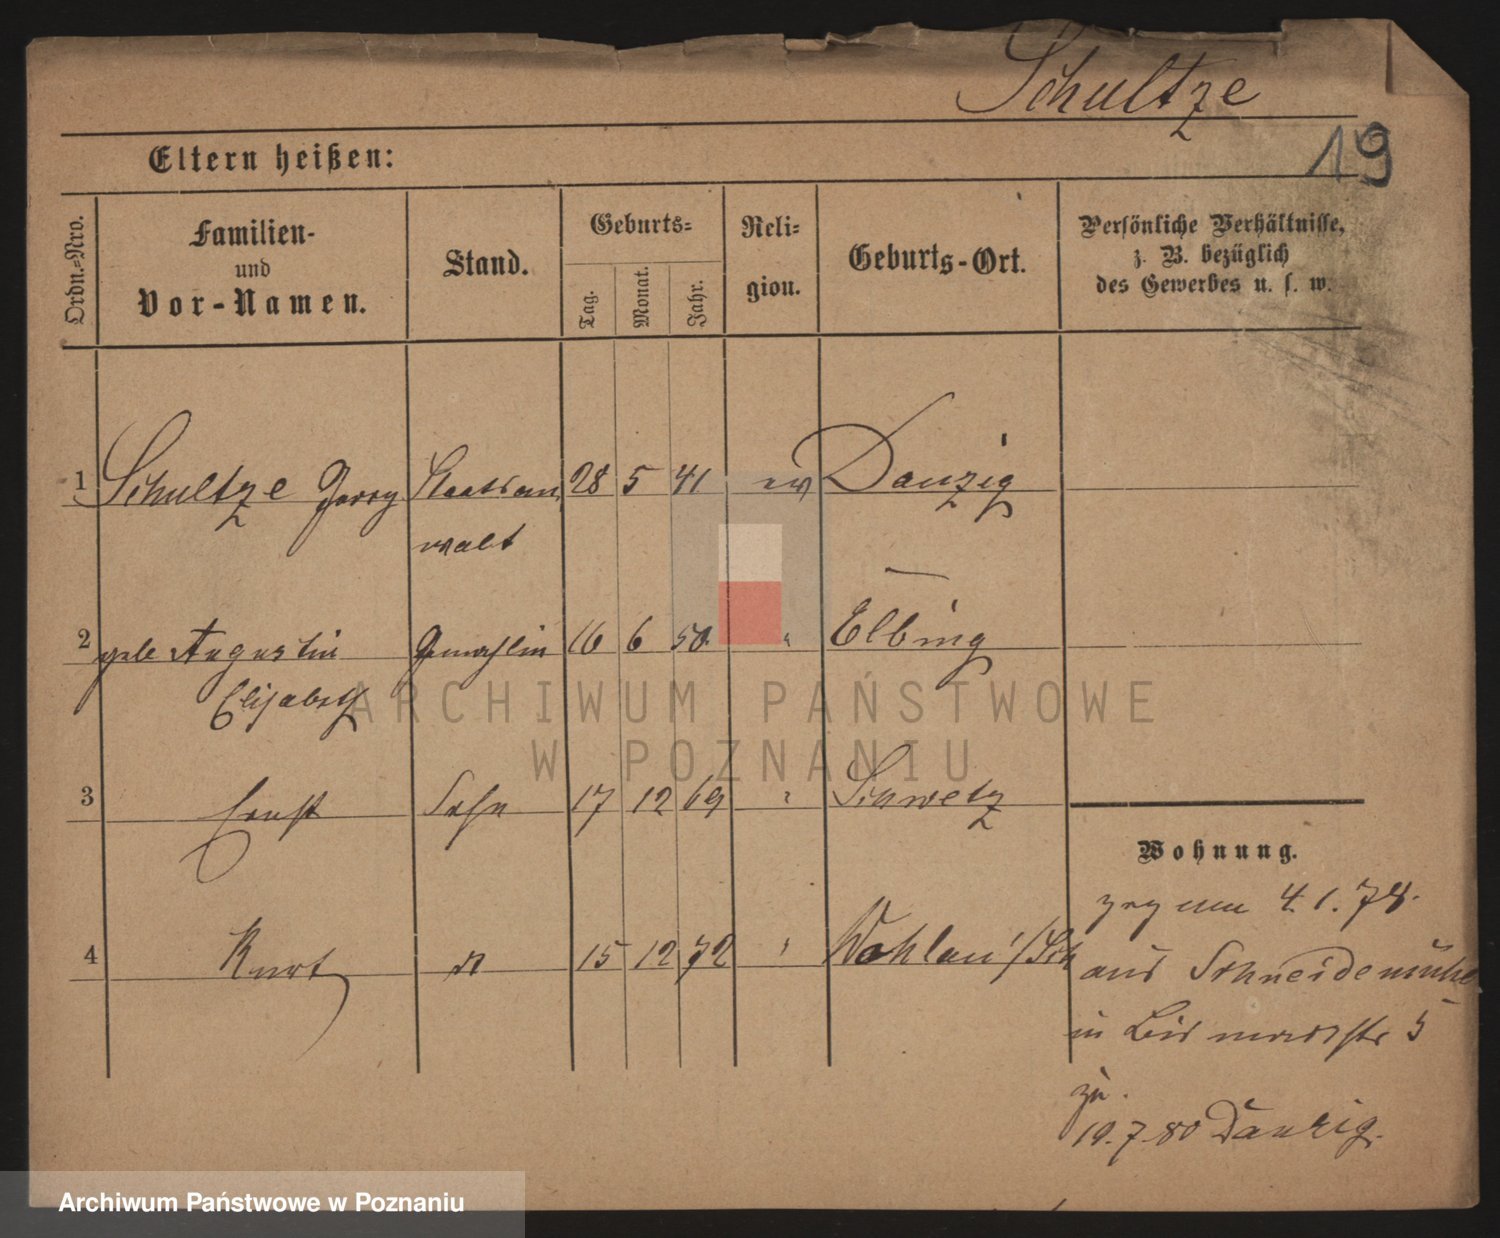 Schultze
19
Eltern heißen:
Ordn.-Nro.
Familien-
und
Vor-Namen.
Stand.
Geburts-
Tag.
Monat.
Jahr.
Reli-
gion.
Geburts-Ort.
Persönliche Verhältnisse,
z. B. bezüglich
des Gewerbes u. s. w.
1 Schultze Staatsan 28 5 41 ev Danzig
walt
2 geb Augustin Gemahlin 16 6 50 " Elbing
Elisabeth
3 Ernst Sohn 17 12 69 " Schwetz
4 Kurt 15 12 72 " Wohlau
Wohnung.
4.1.78.
aus Schneidemühl
in Bismarckstr 5
zu.
19.7.80 Danzig.
ARCHIWUM PAŃSTWOWE
W POZNANIU
Archiwum Państwowe w Poznaniu